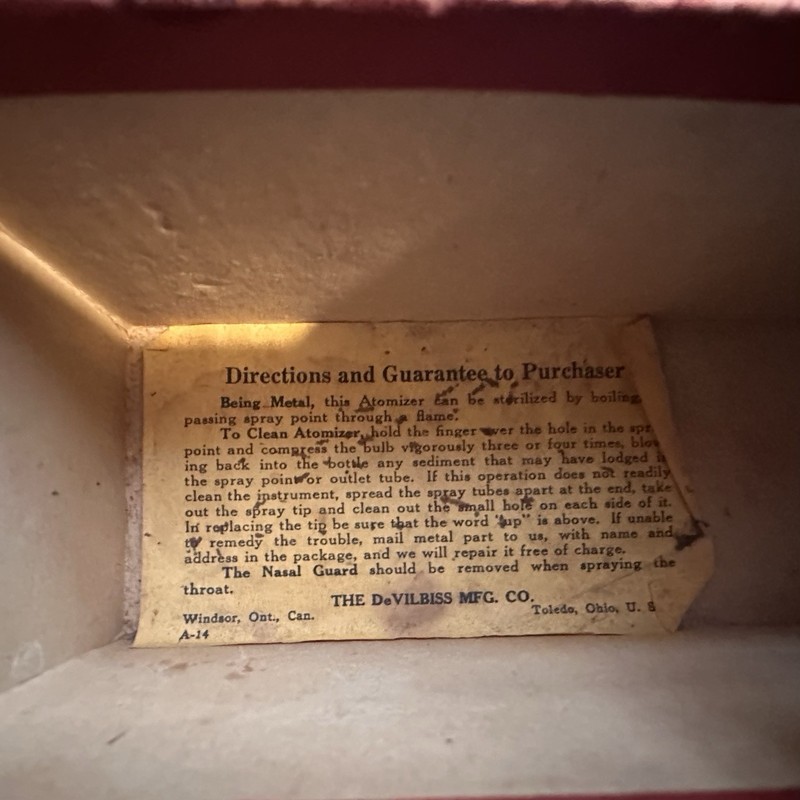 Directions and Guarantee to Purchaser
Being Metal, this Atomizer can be sterilized by boiling
passing spray point through a flame.
To Clean Atomizer, hold the finger over the hole in the spr
point and compress the bulb vigorously three or four times, blow
ing back into the bottle any sediment that may have lodged in
the spray point or outlet tube. If this operation does not readily
clean the instrument, spread the spray tubes apart at the end, take
out the spray tip and clean out the small hole on each side of it.
In replacing the tip be sure that the word "up" is above. If unable
to remedy the trouble, mail metal part to us, with name and
address in the package, and we will repair it free of charge.
The Nasal Guard should be removed when spraying the
throat.
THE DeVILBISS MFG. CO.
Windsor, Ont., Can. Toledo, Ohio, U. S
A-14